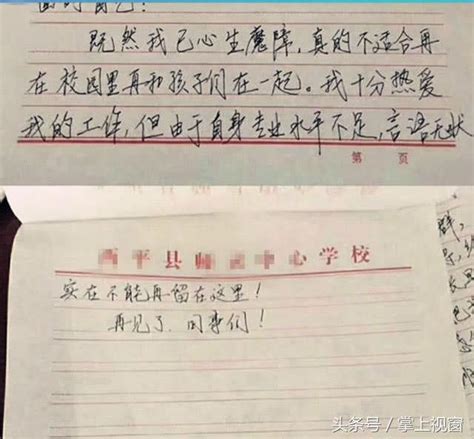 面对自己!
既然我已心生魔障,真的不适合再
在校园里再和孩子们在一起。我十分热爱
我的工作,但由于自身专业水平不足,言语无状
第 页
西平县师灵中心学校
实在不能再留在这里!
再见了,同事们!
头条号/掌上视窗